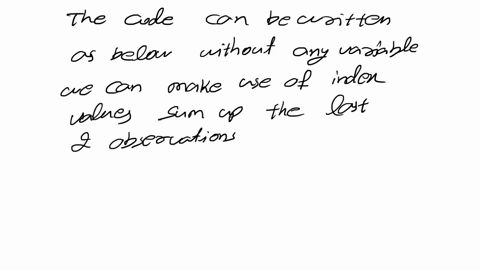 The code can be written
as below without any variable
we can make use of index
values sum up the last
2 observations